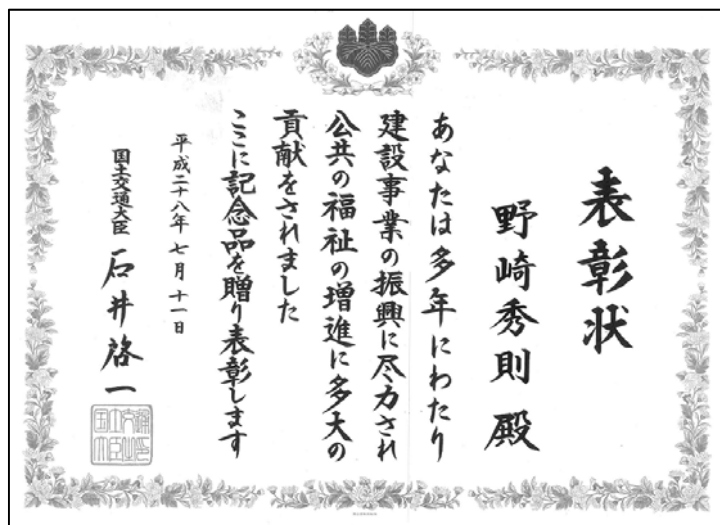 表彰状
野崎秀則 殿
あなたは多年にわたり
建設事業の振興に尽力され
公共の福祉の増進に多大の
貢献をされました
ここに記念品を贈り表彰します
平成二十八年七月十一日
国土交通大臣 石井啓一